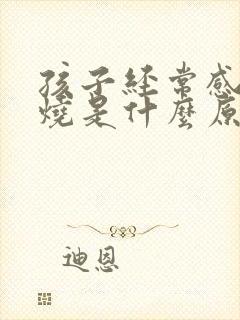 孩子經常感
燒是什麼原
迪恩